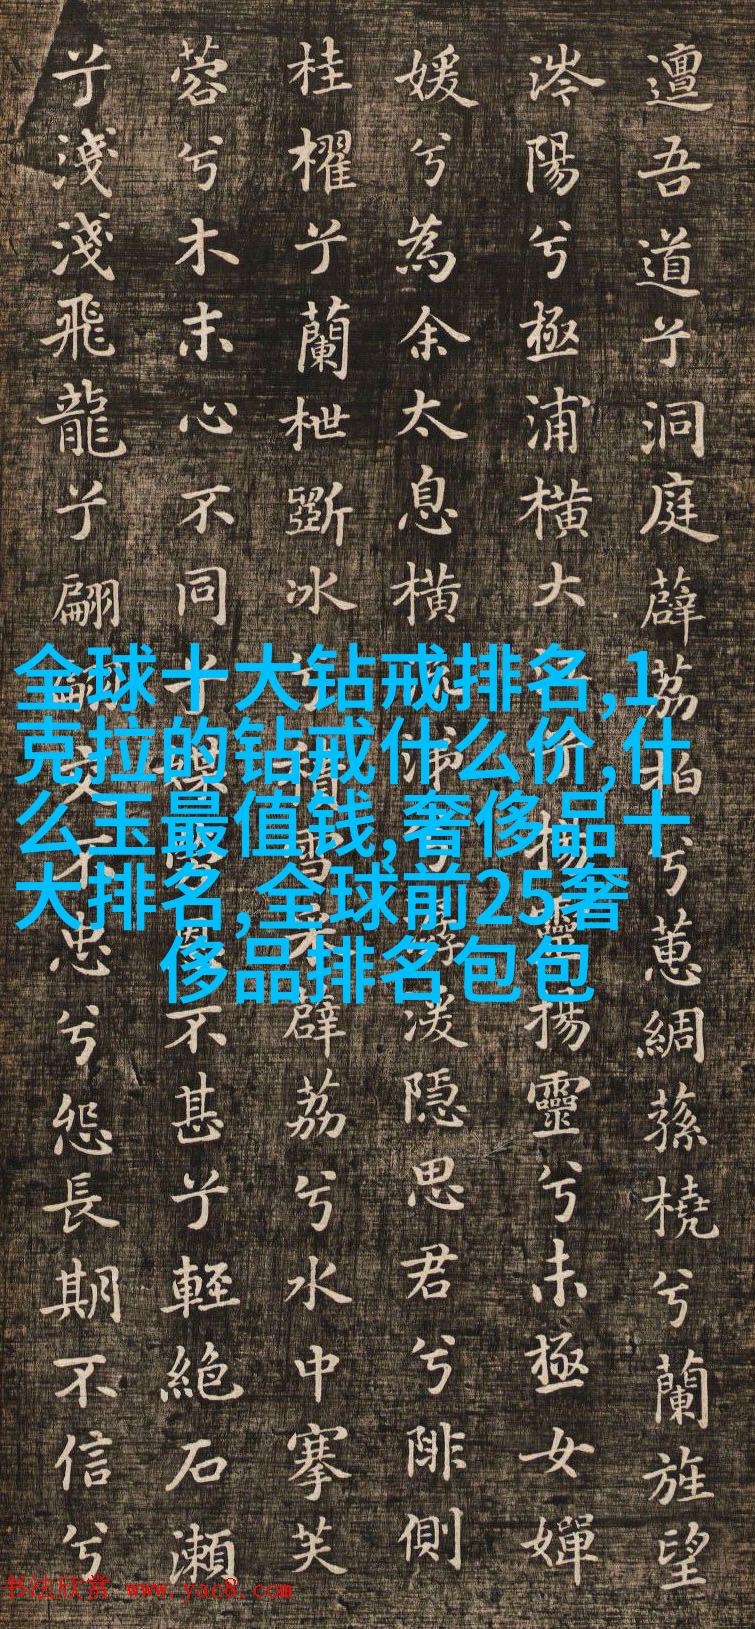 邅吾道兮洞庭薜荔柏兮蕙綢蓀橈兮蘭旌望
涔陽兮極浦橫大江兮揚靈揚靈兮未極女嬋
媛兮為余太息橫流涕兮潺湲隱思君兮陫側
桂櫂兮蘭枻斲冰兮積雪采薜荔兮水中搴芙
蓉兮木末心不同兮媒勞恩不甚兮輕絕石瀨
兮淺淺飛龍兮翩翩交不忠兮怨長期不信兮
全球十大钻戒排名,1
克拉的钻戒什么价,什
么玉最值钱,奢侈品十
大排名,全球前25奢
侈品排名包包
书法欣赏 www.yac8.com